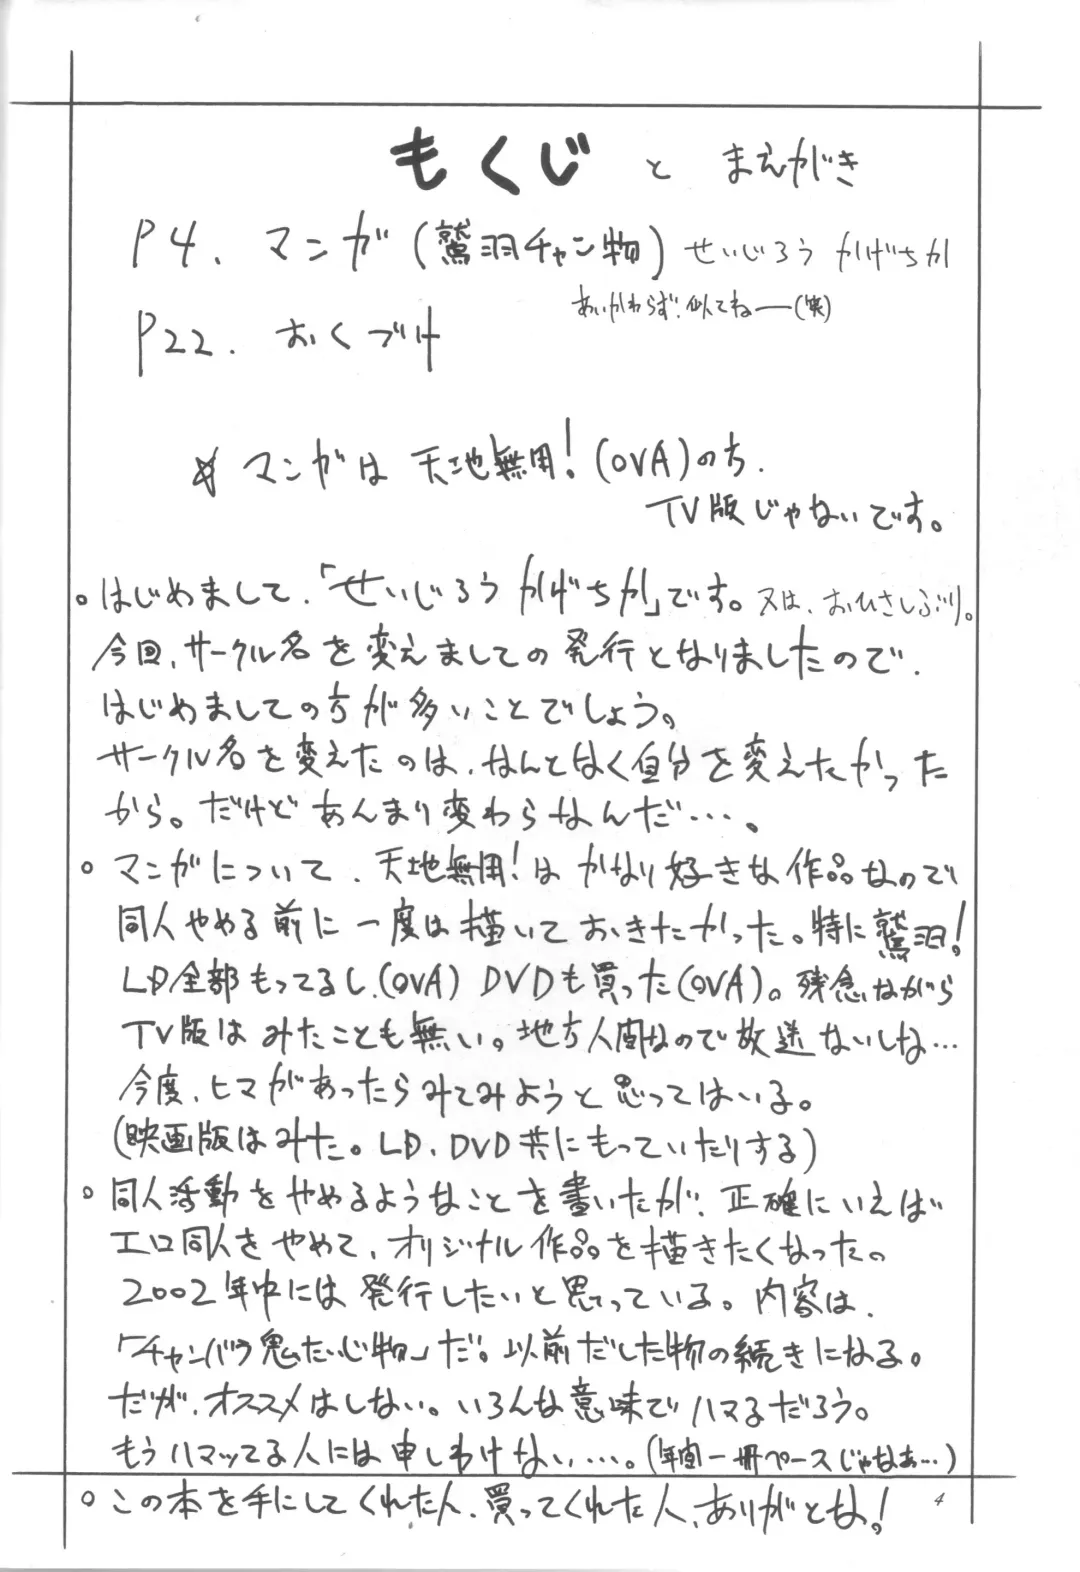 もくじ と まえがき
P4. マンガ(鷲羽チャン物) せいじろう かげちか
あいかわらず、似てねー(笑)
P22. おくづけ
☆ マンガは 天地無用!(OVA)のち.
TV版じゃないです。
。はじめまして、「せいじろう かげちか」です。又は、おひさしぶり。
今回、サークル名を変えましての発行となりましたので、
はじめましての方が多いことでしょう。
サークル名を変えたのは、なんとなく自分を変えたかった
から。だけど あんまり変わらなんだ…。
。マンガについて、天地無用!は かなり好きな作品なので
同人やめる前に一度は描いておきたかった。特に鷲羽!
LD全部もってるし、(OVA) DVDも買った(OVA)。残念ながら
TV版は みたことも無い。地方人間なので放送ないしな…
今度、ヒマがあったらみてみようと思ってはいる。
(映画版はみた。LD、DVD共にもっていたりする)
。同人活動をやめるようなことを書いたが、正確にいえば
エロ同人をやめて、オリジナル作品を描きたくなった。
2002年中には発行したいと思っている。内容は、
「チャンバラ鬼たいじ物」だ。以前だした物の続きになる。
だが、オススメはしない。いろんな意味でハマるだろう。
もうハマッてる人には申しわけない…。(年間一冊ペースじゃなぁ…)
。この本を手にしてくれた人、買ってくれた人、ありがとな!
4